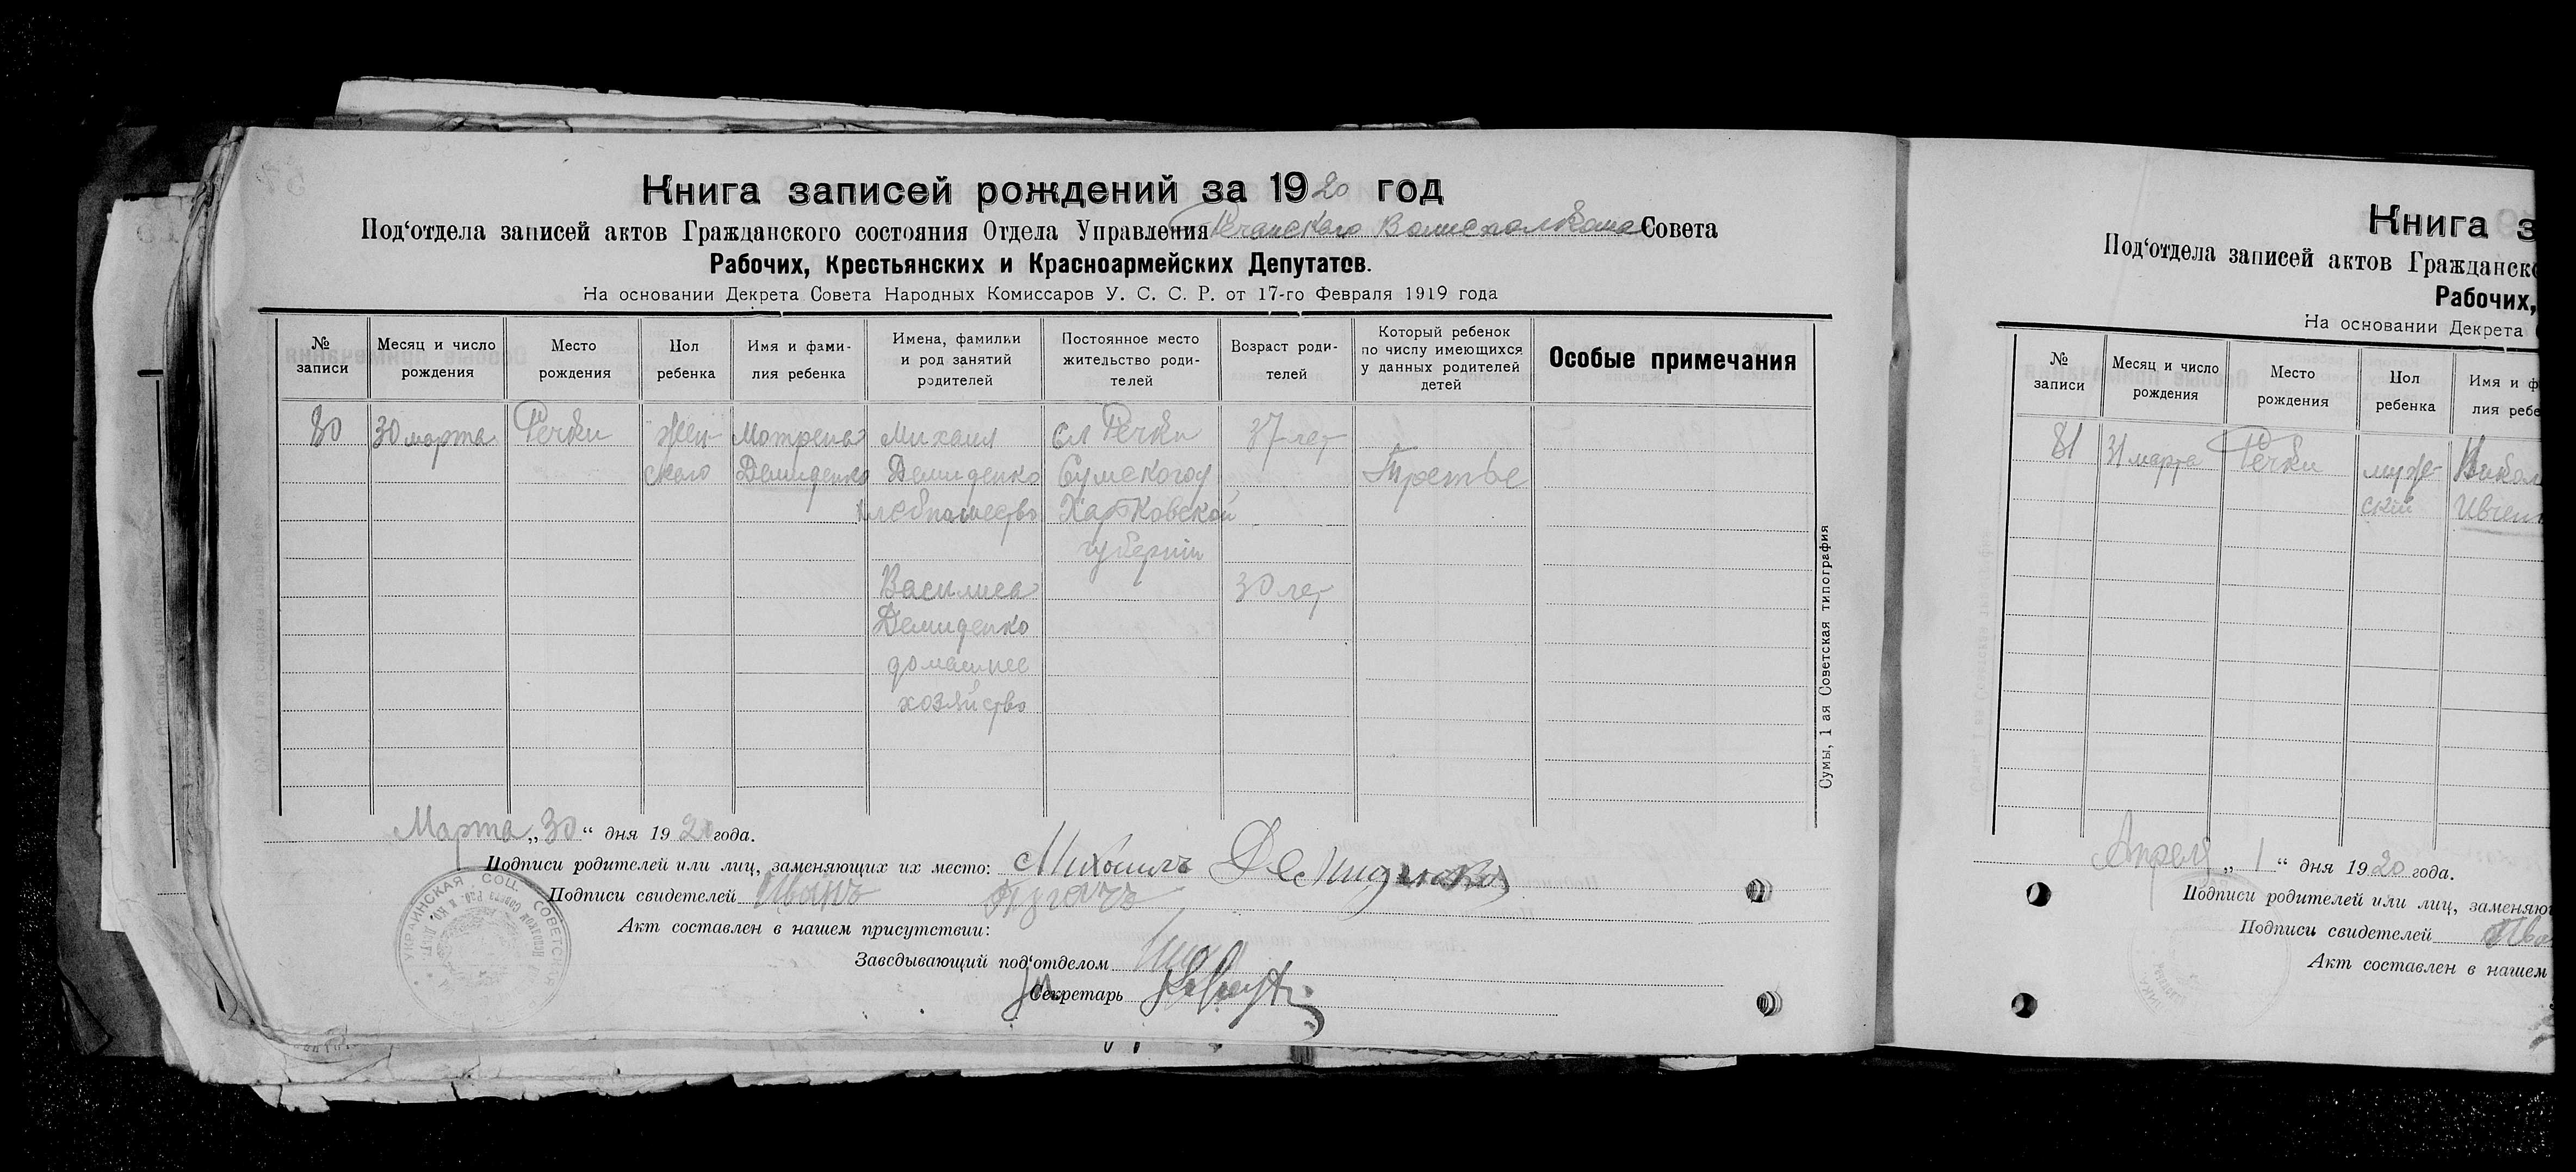 Книга записей рождений за 1920 год
Под‘отдела записей актов Гражданского состояния Отдела Управления Речанского Волисполкома Совета
Рабочих, Крестьянских и Красноармейских Депутатов.
На основании Декрета Совета Народных Комиссаров У. С. С. Р. от 17-го Февраля 1919 года
№ записи
Месяц и число рождения
Место рождения
Пол ребенка
Имя и фамилия ребенка
Имена, фамилии и род занятий родителей
Постоянное место жительство родителей
Возраст родителей
Который ребенок по числу имеющихся у данных родителей детей
Особые примечания
80 30 марта Речки Жен- Мотрена Михаил сл Речки 37 лет
ского Демиденко Демиденко Сумского у Третье
хлебпашество Харьковской
губернии
Василиса 30 лет
Демиденко
домашнее
хозяйство
Сумы, 1 ая Советская типография
Марта „30“ дня 1920 года.
Подписи родителей или лиц, заменяющих их место: Михаилъ Демиденко
Подписи свидетелей Иванъ
Акт составлен в нашем присутствии:
Заведывающий под‘отделом
Секретарь
УКРАИНСКАЯ СОЦ. СОВЕТСКАЯ
Книга з
Под‘отдела записей актов Гражданско
Рабочих,
На основании Декрета
№ записи
Месяц и число рождения
Место рождения
Пол ребенка
Имя и ф
лия ребе
81 31 марта Речки муж- Никол
ской Ивчен
Апреля „1“ дня 1920 года.
Подписи родителей или лиц, заменяю
Подписи свидетелей
Акт составлен в нашем